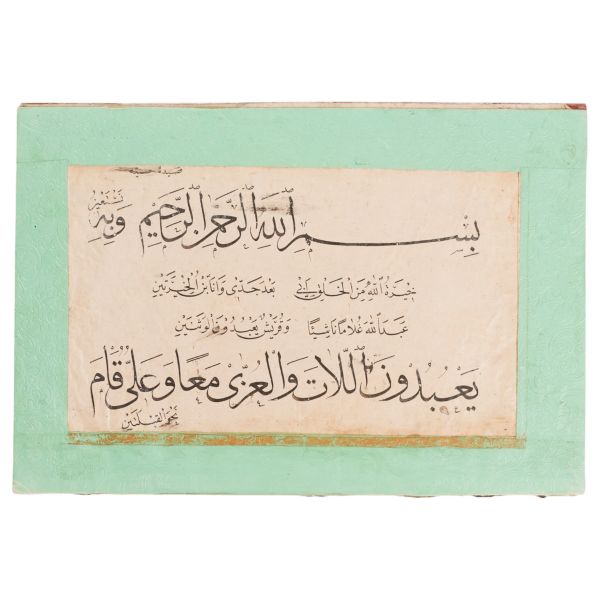 بِسْمِ اللّٰهِ الرَّحْمٰنِ الرَّحِيْمِ وَبِهِ نَسْتَعِيْنُ
خِيَرَةُ اللّٰهِ مِنَ الْخَلْقِ اَبِىْ بَعْدَ جَدِّىْ وَاَنَا بْنُ الْخِيَرَتَيْنِ
عَبَدَ اللّٰهَ غُلَامًا نَاشِئًا وَقُرَيْشٌ يَعْبُدُوْنَ الْوَثَنَيْنِ
يَعْبُدُوْنَ اللَّاتَ وَالْعُزّٰى مَعًا وَعَلِىٌّ قَامَ
نَحْوَ الْقِبْلَتَيْنِ